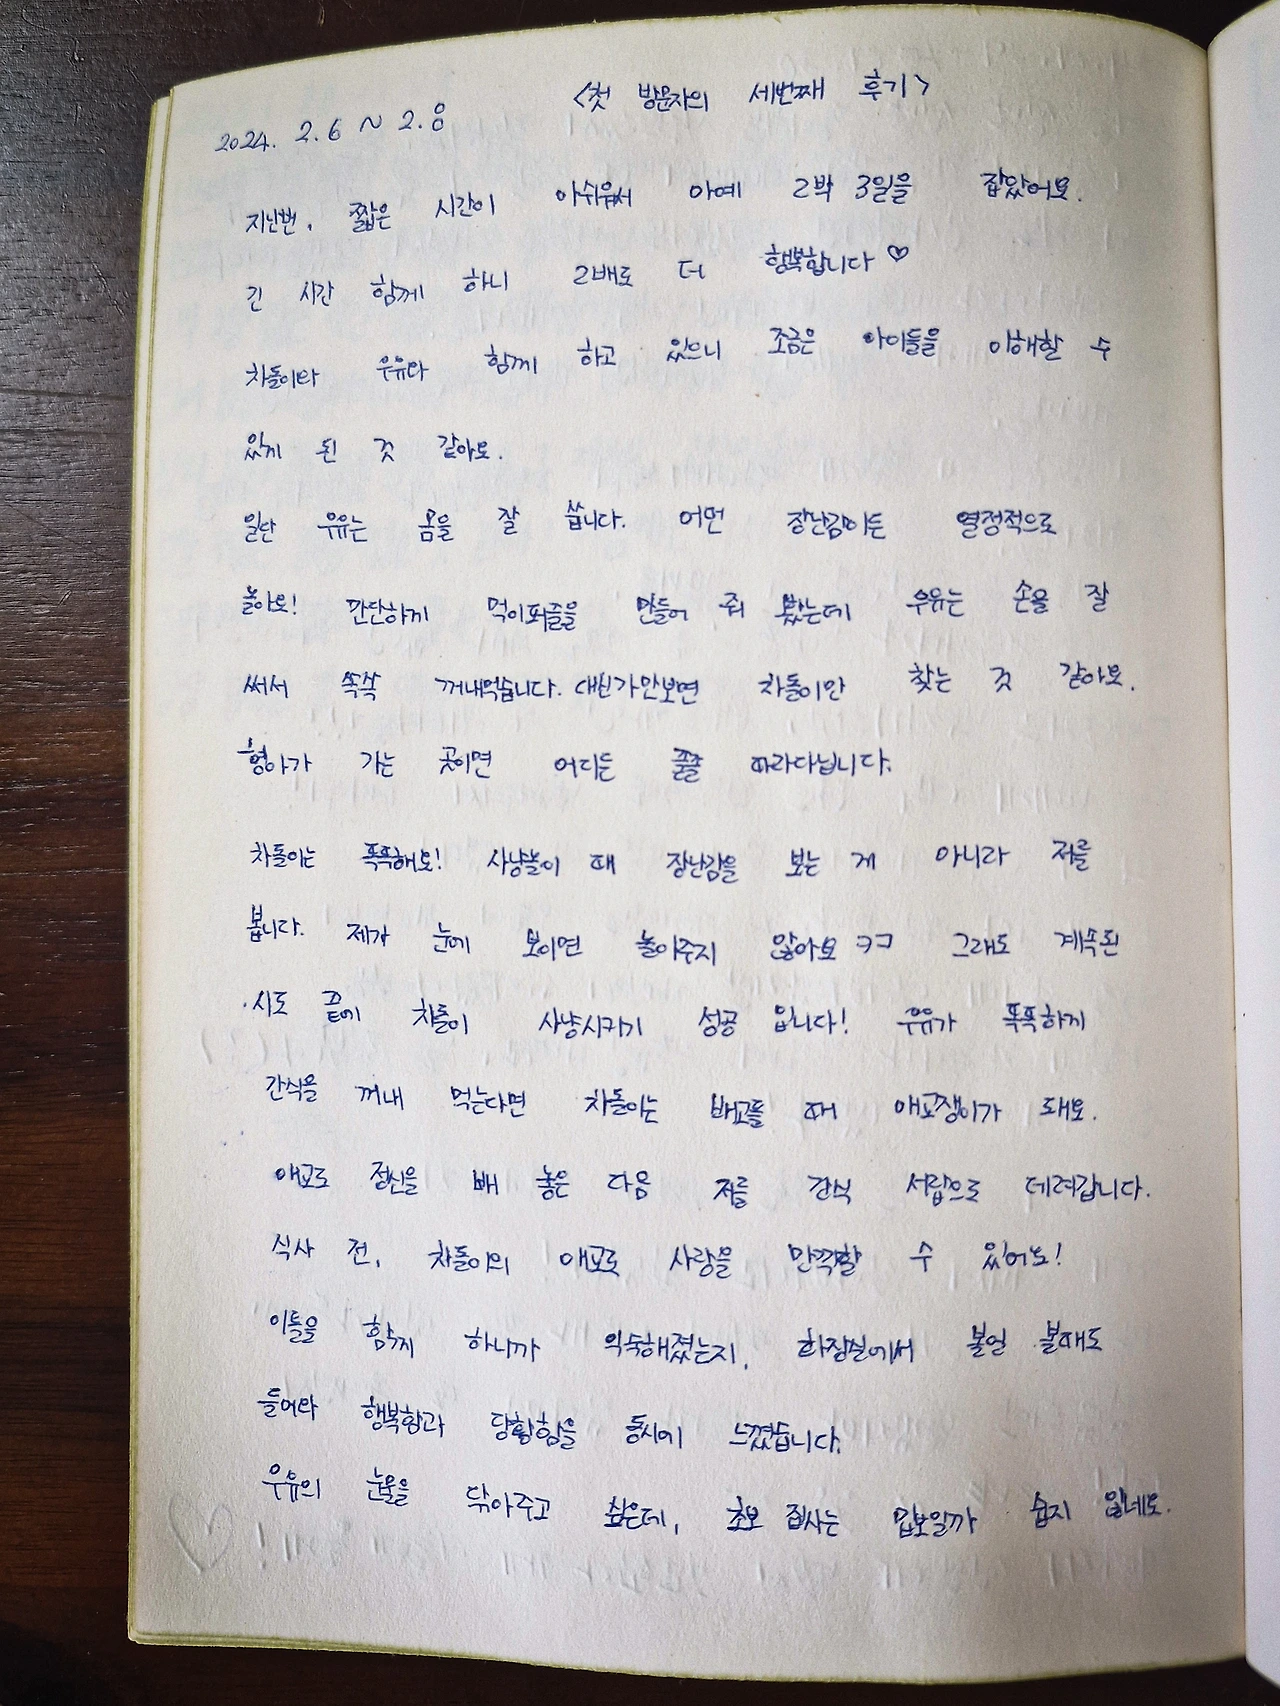 <첫 방문자의 세번째 후기>
2024. 2.6 ~ 2.8
지난번, 짧은 시간이 아쉬워서 아예 2박 3일을 잡았어요.
긴 시간 함께 하니 2배로 더 행복합니다♡
차돌이와 우유와 함께 하고 있으니 조금은 아이들을 이해할 수
있게 된 것 같아요.
일단 우유는 몸을 잘 씁니다. 어떤 장난감이든 열정적으로
놀아요! 간단하게 먹이퍼즐을 만들어 줘 봤는데 우유는 손을 잘
써서 쏙쏙 꺼내먹습니다. 대신 가만보면 차돌이만 찾는 것 같아요.
형아가 가는 곳이면 어디든 쭐쭐 따라다닙니다.
차돌이는 똑똑해요! 사냥놀이 때 장난감을 보는 게 아니라 저를
봅니다. 제가 눈에 보이면 놀아주지 않아요 ㅋㅋ 그래도 계속된
시도 끝에 차돌이 사냥시키기 성공 입니다! 우유가 똑똑하게
간식을 꺼내 먹는다면 차돌이는 배고플 때 애교쟁이가 돼요.
애교로 정신을 빼 놓은 다음 저를 간식 서랍으로 데려갑니다.
식사 전, 차돌이의 애교로 사랑을 만끽할 수 있어요!
이틀을 함께 하니까 익숙해졌는지, 화장실에서 볼일 볼때도
들어와 행복함과 당황함을 동시에 느꼈습니다.
우유의 눈물을 닦아주고 싶은데, 초보 집사는 밉보일까 쉽지 않네요.